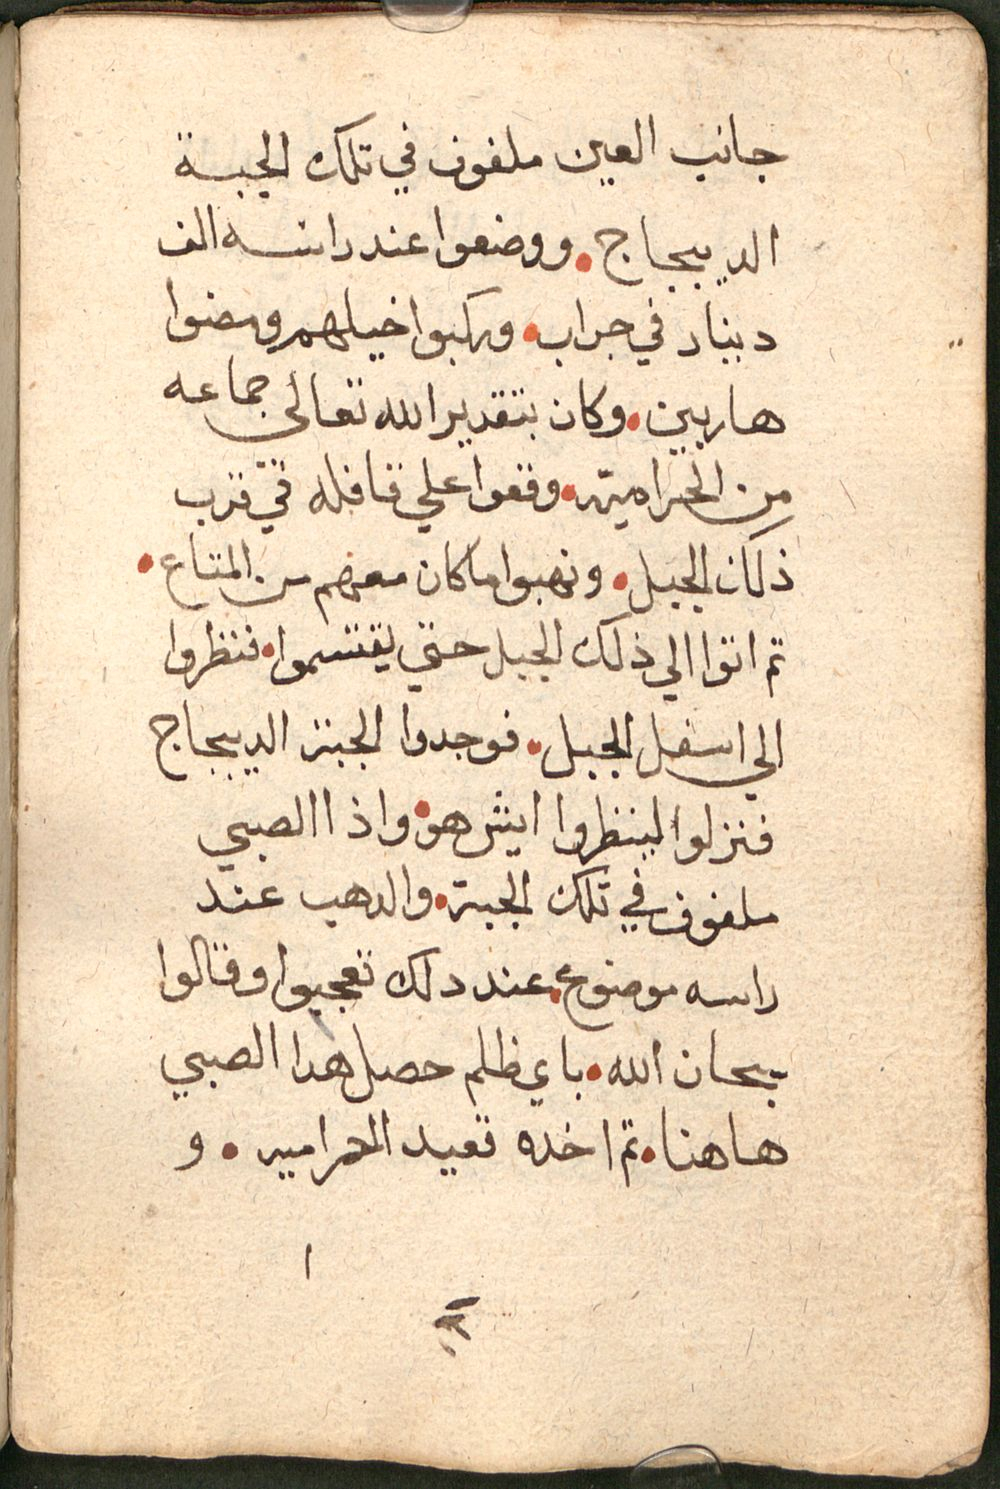 جانب العين ملفوف في تلك الجبة
الديباج • ووضعوا عند راسه الف
دينار في جراب • وركبوا خيلهم ومضوا
هاربين • وكان بتقدير الله تعالي جماعه
من الحراميه • وقعوا علي قافله في قرب
ذلك الجبل • ونهبوا ما كان معهم من المتاع •
ثم اتوا الي ذلك الجبل حتي يقتسموا • فنظروا
الي اسفل الجبل • فوجدوا الجبة الديباج
فنزلوا لينظروا ايش هو • واذا الصبي
ملفوف في تلك الجبة • والدهب عند
راسه موضوع • عند دلك تعجبوا وقالوا
سبحان الله • باي ظلم حصل هدا الصبي
هاهنا • ثم اخده قعيد الحراميه • و